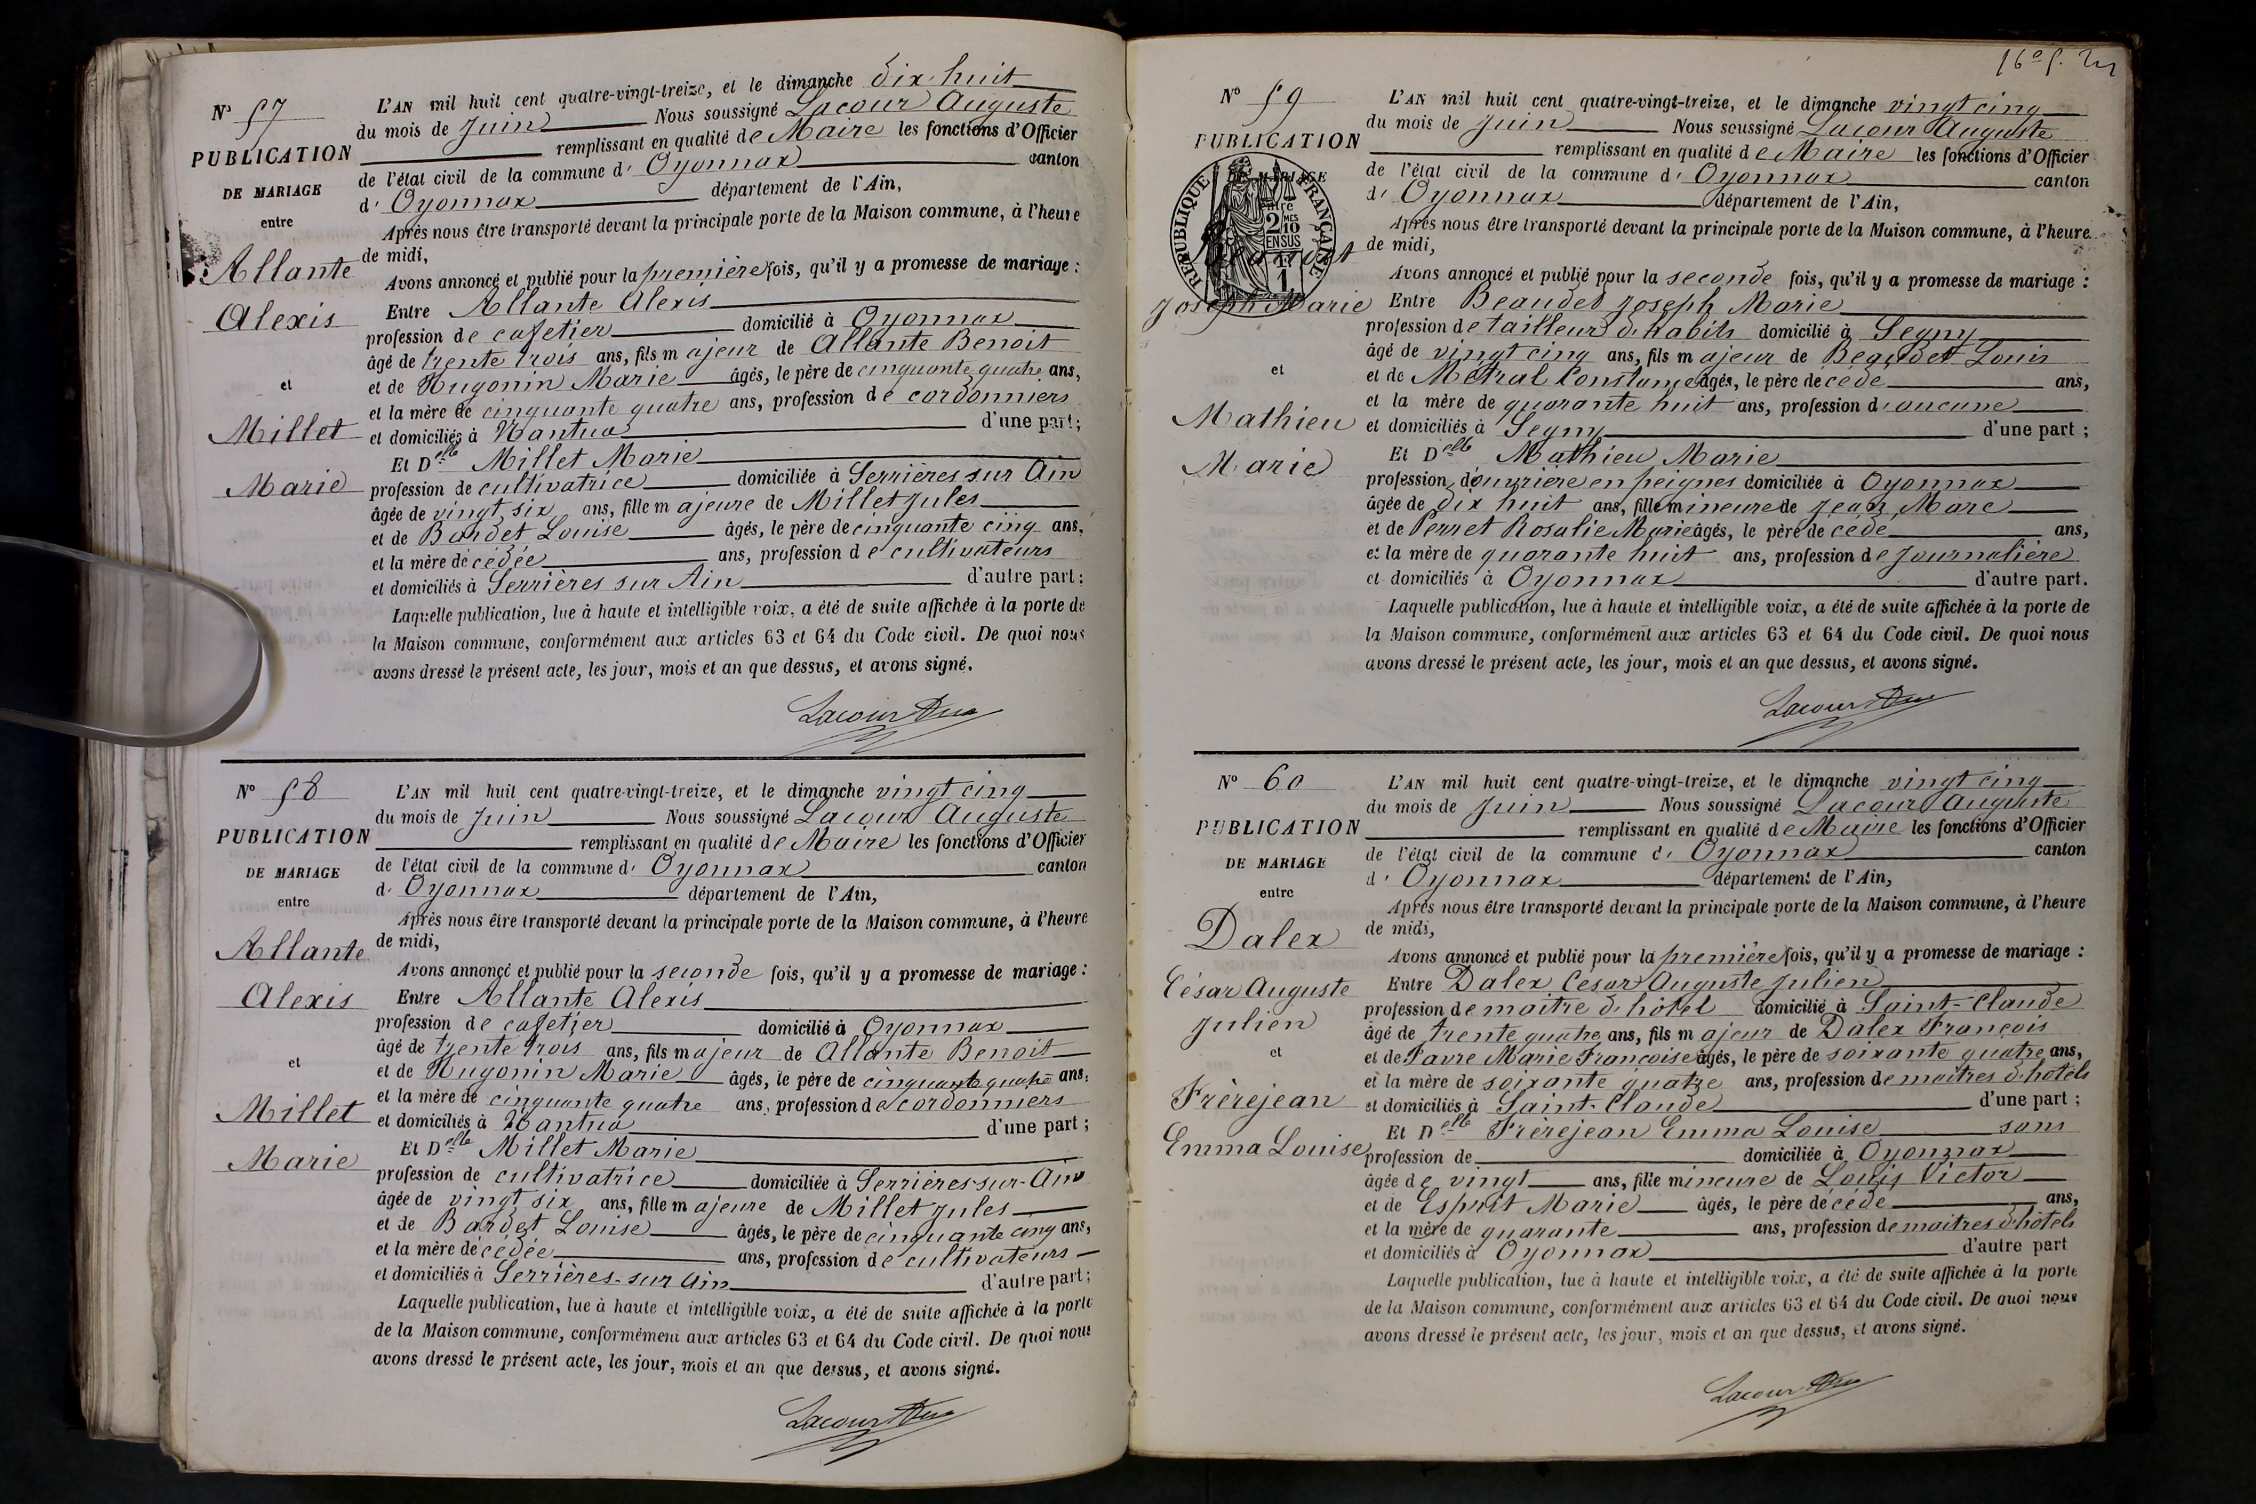 N° 57
PUBLICATION
DE MARIAGE
entre
Allante
Alexis
et
Millet
Marie
L'AN mil huit cent quatre-vingt-treize, et le dimanche dix-huit
du mois de Juin Nous soussigné Lacour Auguste
remplissant en qualité de Maire les fonctions d'Officier
de l'état civil de la commune d' Oyonnax canton
d' Oyonnax département de l'Ain,
Après nous être transporté devant la principale porte de la Maison commune, à l'heure
de midi,
Avons annoncé et publié pour la première fois, qu'il y a promesse de mariage :
Entre Allante Alexis
profession de cafetier domicilié à Oyonnax
âgé de trente trois ans, fils majeur de Allante Benoit
et de Hugonin Marie âgés, le père de cinquante quatre ans,
et la mère de cinquante quatre ans, profession de cordonniers
et domiciliés à Nantua d'une part;
Et Delle Millet Marie
profession de cultivatrice domiciliée à Serrières sur Ain
âgée de vingt six ans, fille majeure de Millet Jules
et de Bardet Louise âgés, le père de cinquante cinq ans,
et la mère décédée ans, profession de cultivateurs
et domiciliés à Serrières sur Ain d'autre part;
Laquelle publication, lue à haute et intelligible voix, a été de suite affichée à la porte de
la Maison commune, conformément aux articles 63 et 64 du Code civil. De quoi nous
avons dressé le présent acte, les jour, mois et an que dessus, et avons signé.
Lacour Aug
N° 58
PUBLICATION
DE MARIAGE
entre
Allante
Alexis
et
Millet
Marie
L'AN mil huit cent quatre-vingt-treize, et le dimanche vingt cinq
du mois de Juin Nous soussigné Lacour Auguste
remplissant en qualité de Maire les fonctions d'Officier
de l'état civil de la commune d' Oyonnax canton
d' Oyonnax département de l'Ain,
Après nous être transporté devant la principale porte de la Maison commune, à l'heure
de midi,
Avons annoncé et publié pour la seconde fois, qu'il y a promesse de mariage :
Entre Allante Alexis
profession de cafetier domicilié à Oyonnax
âgé de trente trois ans, fils majeur de Allante Benoit
et de Hugonin Marie âgés, le père de cinquante quatre ans,
et la mère de cinquante quatre ans, profession de cordonniers
et domiciliés à Nantua d'une part ;
Et Delle Millet Marie
profession de cultivatrice domiciliée à Serrières-sur-Ain
âgée de vingt six ans, fille majeure de Millet Jules
et de Bardet Louise âgés, le père de cinquante cinq ans,
et la mère décédée ans, profession de cultivateurs
et domiciliés à Serrières-sur Ain d'autre part ;
Laquelle publication, lue à haute et intelligible voix, a été de suite affichée à la porte
de la Maison commune, conformément aux articles 63 et 64 du Code civil. De quoi nous
avons dressé le présent acte, les jour, mois et an que dessus, et avons signé.
Lacour Aug
16e f.
N° 59
PUBLICATION
DE MARIAGE
entre
RÉPUBLIQUE FRANÇAISE
2 MES
10
EN SUS
Joseph Marie
et
Mathieu
Marie
L'AN mil huit cent quatre-vingt-treize, et le dimanche vingt cinq
du mois de Juin Nous soussigné Lacour Auguste
remplissant en qualité de Maire les fonctions d'Officier
de l'état civil de la commune d' Oyonnax canton
d' Oyonnax département de l'Ain,
Après nous être transporté devant la principale porte de la Maison commune, à l'heure
de midi,
Avons annoncé et publié pour la seconde fois, qu'il y a promesse de mariage :
Entre Beaudet Joseph Marie
profession de tailleur d'habits domicilié à Segny
âgé de vingt cinq ans, fils majeur de Beaudet Louis
et de Métral Constance âgés, le père décédé ans,
et la mère de quarante huit ans, profession d'aucune
et domiciliés à Segny d'une part ;
Et Delle Mathieu Marie
profession d'ouvrière en peignes domiciliée à Oyonnax
âgée de dix huit ans, fille mineure de Jean Marc
et de Perret Rosalie Marie âgés, le père décédé ans,
et la mère de quarante huit ans, profession de journalière
et domiciliés à Oyonnax d'autre part.
Laquelle publication, lue à haute et intelligible voix, a été de suite affichée à la porte de
la Maison commune, conformément aux articles 63 et 64 du Code civil. De quoi nous
avons dressé le présent acte, les jour, mois et an que dessus, et avons signé.
Lacour Aug
N° 60
PUBLICATION
DE MARIAGE
entre
Dalex
César Auguste
Julien
et
Frèrejean
Emma Louise
L'AN mil huit cent quatre-vingt-treize, et le dimanche vingt cinq
du mois de Juin Nous soussigné Lacour Auguste
remplissant en qualité de Maire les fonctions d'Officier
de l'état civil de la commune d' Oyonnax canton
d' Oyonnax département de l'Ain,
Après nous être transporté devant la principale porte de la Maison commune, à l'heure
de midi,
Avons annoncé et publié pour la première fois, qu'il y a promesse de mariage :
Entre Dalex César Auguste Julien
profession de maître d'hôtel domicilié à Saint-Claude
âgé de trente quatre ans, fils majeur de Dalex François
et de Favre Marie Françoise âgés, le père de soixante quatre ans,
et la mère de soixante quatre ans, profession de maîtres d'hôtels
et domiciliés à Saint-Claude d'une part ;
Et Delle Frèrejean Emma Louise sans
profession de domiciliée à Oyonnax
âgée de vingt ans, fille mineure de Louis Victor
et de Esprit Marie âgés, le père décédé ans,
et la mère de quarante ans, profession de maîtres d'hôtels
et domiciliés à Oyonnax d'autre part
Laquelle publication, lue à haute et intelligible voix, a été de suite affichée à la porte
de la Maison commune, conformément aux articles 63 et 64 du Code civil. De quoi nous
avons dressé le présent acte, les jour, mois et an que dessus, et avons signé.
Lacour Aug